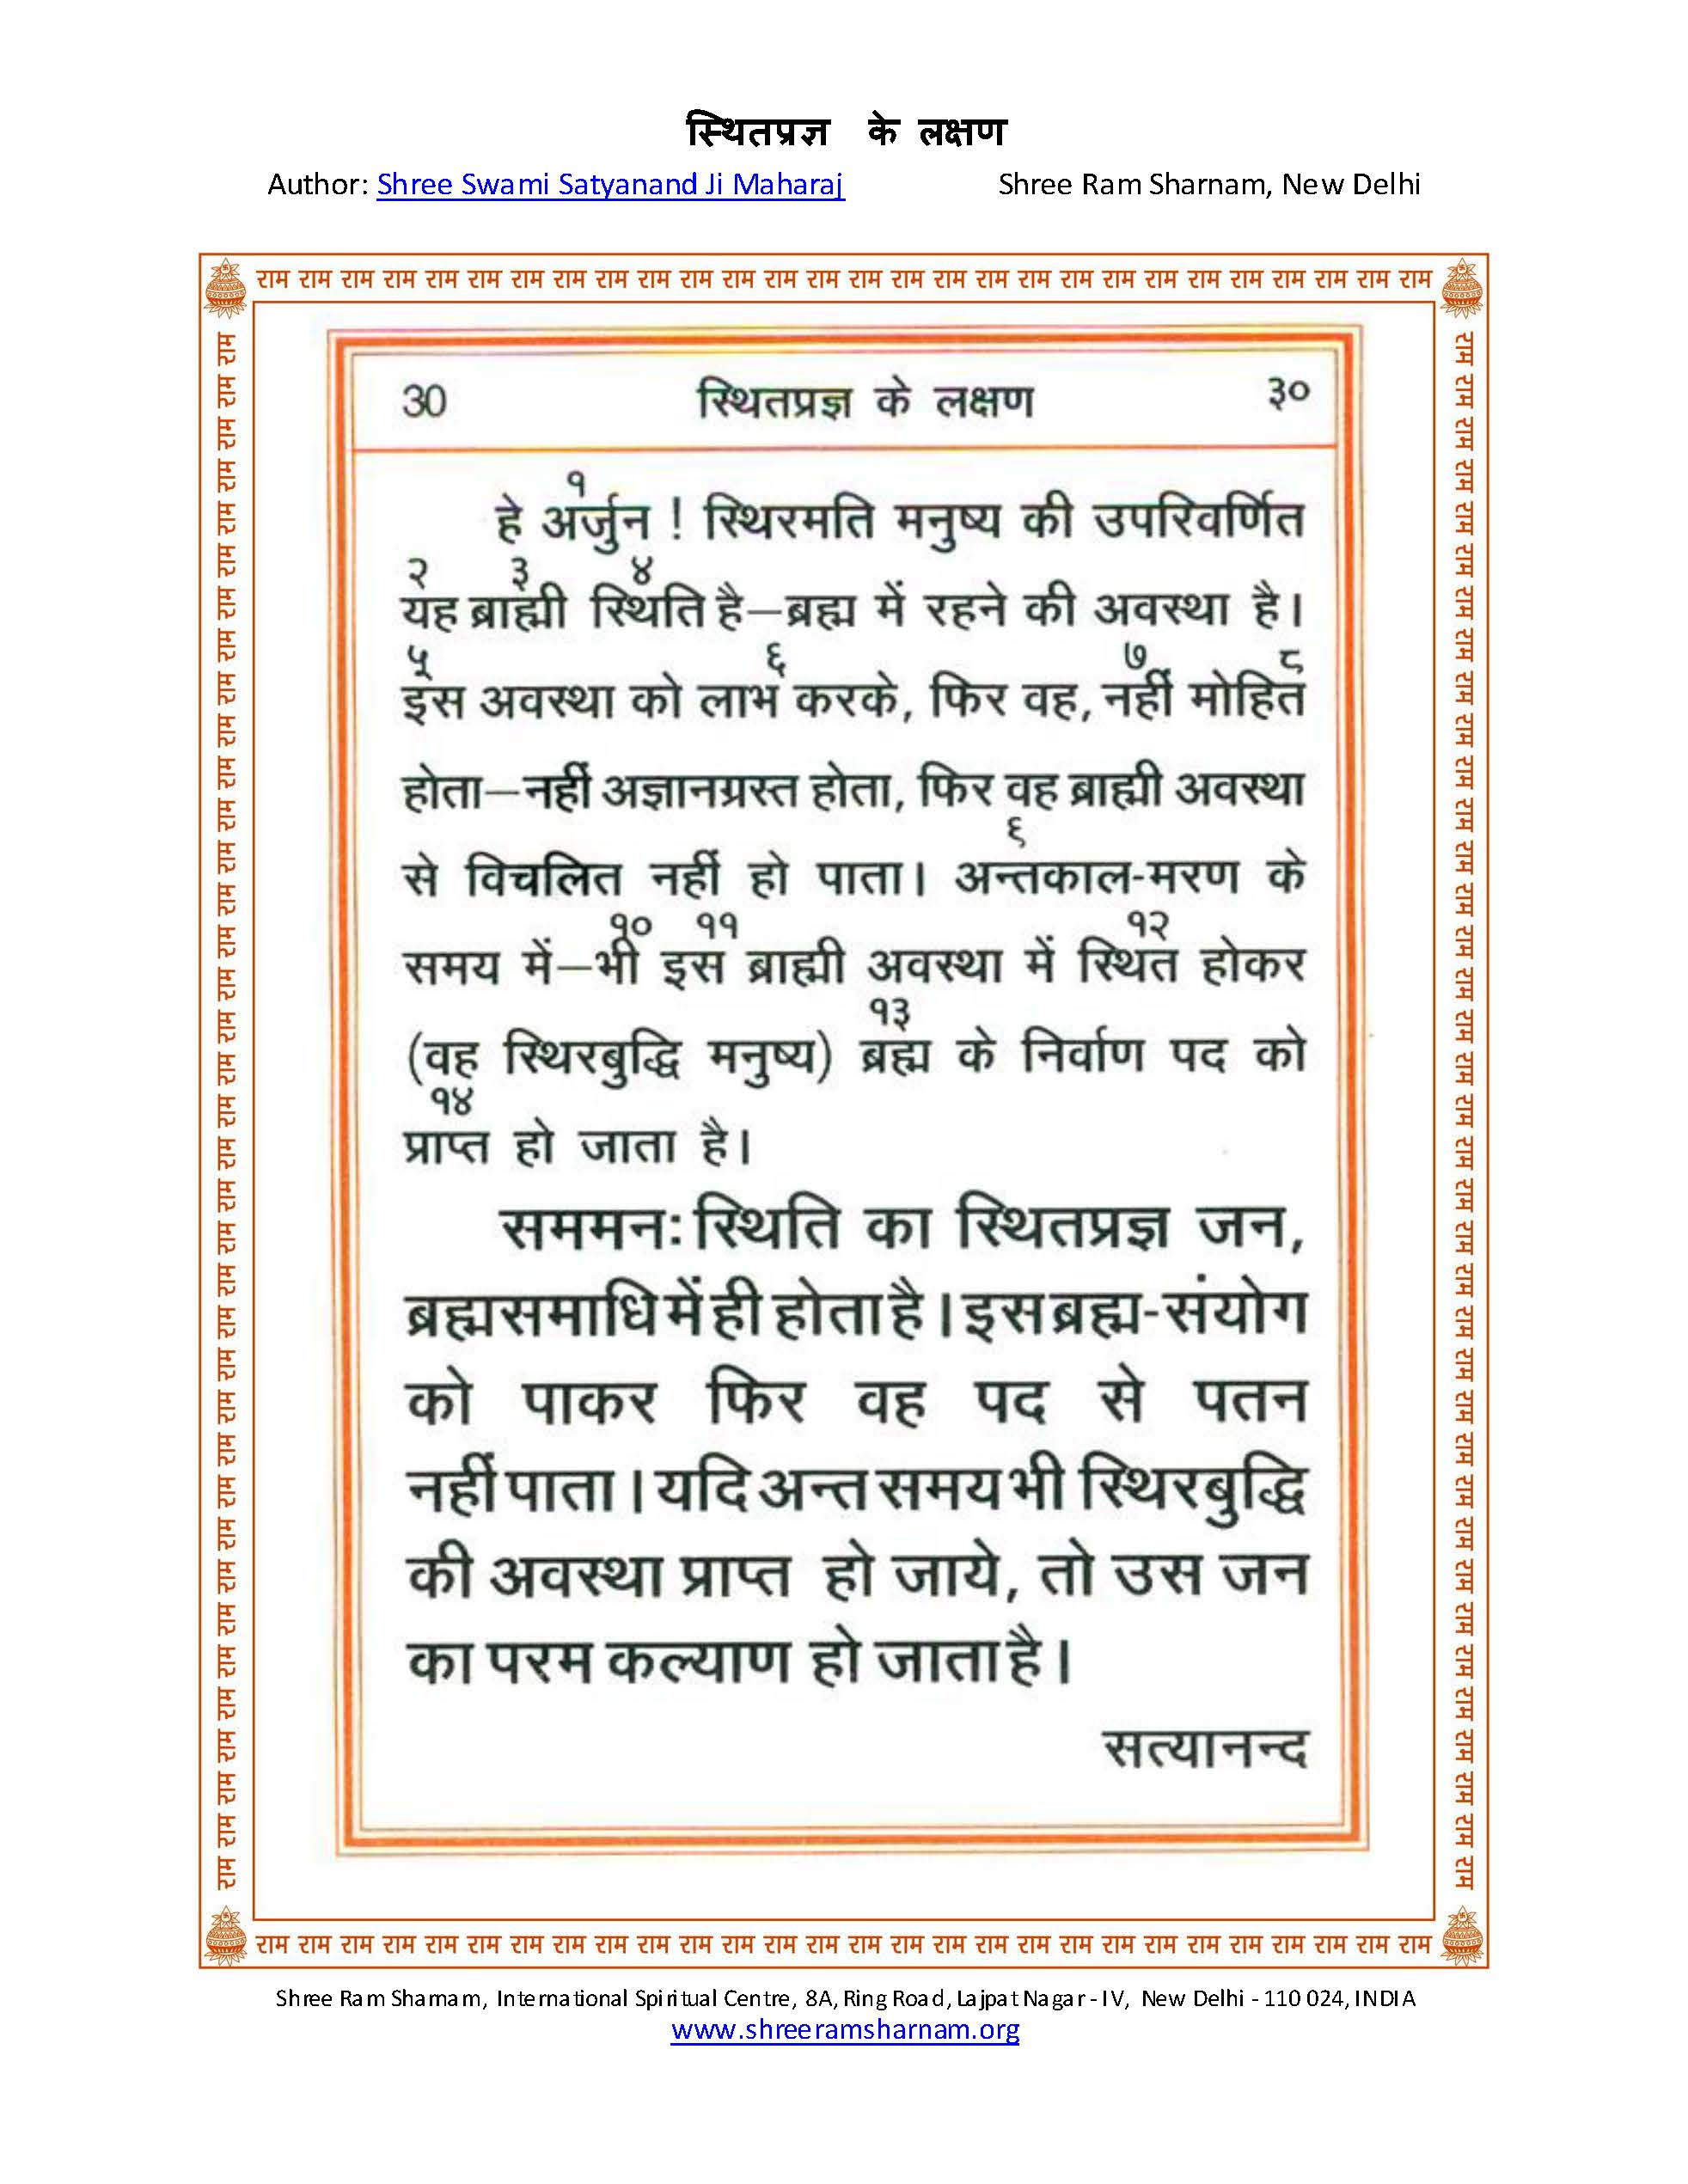 स्थितप्रज्ञ के लक्षण
Author: Shree Swami Satyanand Ji Maharaj Shree Ram Sharnam, New Delhi
राम राम राम राम राम राम राम राम राम राम राम राम राम राम राम राम राम राम राम राम राम राम राम राम राम राम राम राम
30 स्थितप्रज्ञ के लक्षण ३०
१
हे अर्जुन ! स्थिरमति मनुष्य की उपरिवर्णित
२ ३ ४
यह ब्राह्मी स्थिति है—ब्रह्म में रहने की अवस्था है।
५ ६ ७ ८
इस अवस्था को लाभ करके, फिर वह, नहीं मोहित
होता—नहीं अज्ञानग्रस्त होता, फिर वह ब्राह्मी अवस्था
६
से विचलित नहीं हो पाता। अन्तकाल-मरण के
१० ११ १२
समय में—भी इस ब्राह्मी अवस्था में स्थित होकर
१३
(वह स्थिरबुद्धि मनुष्य) ब्रह्म के निर्वाण पद को
१४
प्राप्त हो जाता है।
सममनः स्थिति का स्थितप्रज्ञ जन,
ब्रह्मसमाधि में ही होता है। इस ब्रह्म-संयोग
को पाकर फिर वह पद से पतन
नहीं पाता। यदि अन्त समय भी स्थिरबुद्धि
की अवस्था प्राप्त हो जाये, तो उस जन
का परम कल्याण हो जाता है।
सत्यानन्द
राम राम राम राम राम राम राम राम राम राम राम राम राम राम राम राम राम राम राम राम राम राम राम राम राम राम राम राम
राम राम राम राम राम राम राम राम राम राम राम राम राम राम राम राम राम राम राम राम राम राम राम राम राम राम राम राम राम राम राम राम राम राम राम राम राम
राम राम राम राम राम राम राम राम राम राम राम राम राम राम राम राम राम राम राम राम राम राम राम राम राम राम राम राम राम राम राम राम राम राम राम राम राम
Shree Ram Sharnam, International Spiritual Centre, 8A, Ring Road, Lajpat Nagar - IV, New Delhi - 110 024, INDIA
www.shreeramsharnam.org